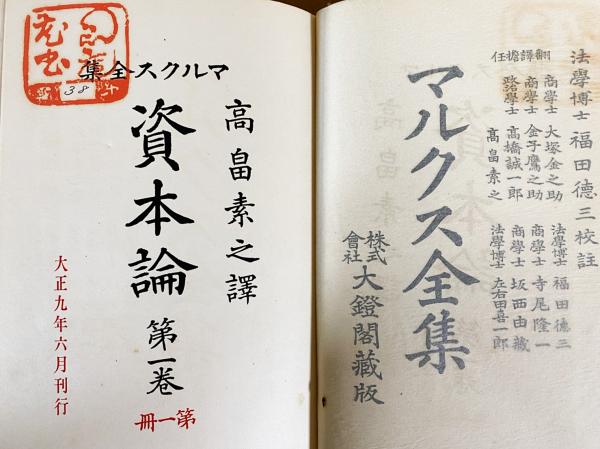 法學博士 福田德三校註
翻譯擔任
商學士 大塚金之助
商學士 金子鷹之助
政治學士 高橋誠一郎
高畠素之
法學博士 福田德三
商學士 寺尾隆一
商學士 坂西由藏
法學博士 左右田喜一郎
マルクス全集
株式會社 大鐙閣藏版
マルクス全集
高畠素之譯
資本論 第一卷
第一冊
大正九年六月刊行
38